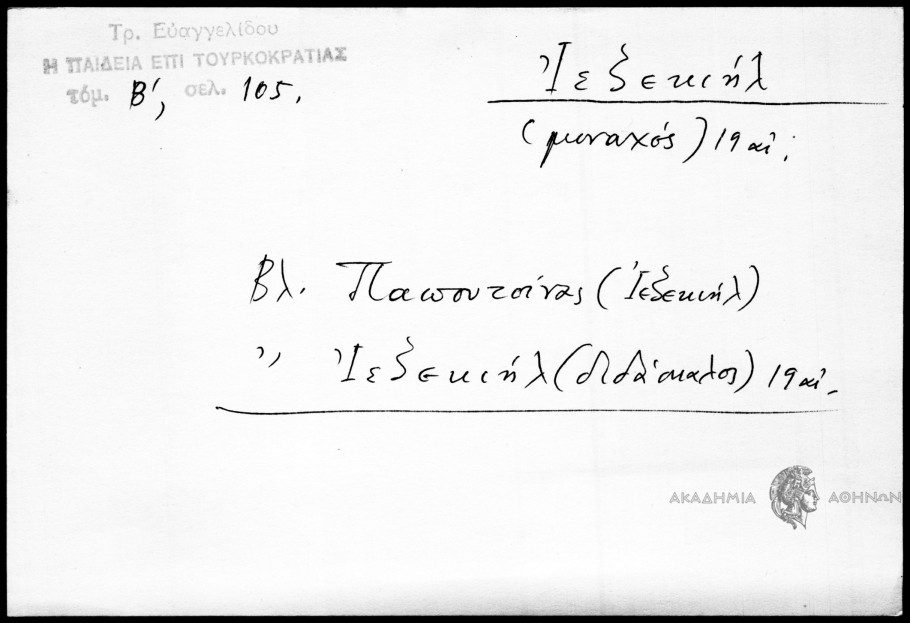 Τρ. Εὐαγγελίδου
Η ΠΑΙΔΕΙΑ ΕΠΙ ΤΟΥΡΚΟΚΡΑΤΙΑΣ
τόμ. Β', σελ. 105.
Ἰεζεκιήλ
(μοναχός) 19 αἰ.
Βλ. Παπουτσίνας (Ἰεζεκιήλ)
'' Ἰεζεκιήλ (διδάσκαλος) 19 αἰ.
ΑΚΑΔΗΜΙΑ ΑΘΗΝΩΝ